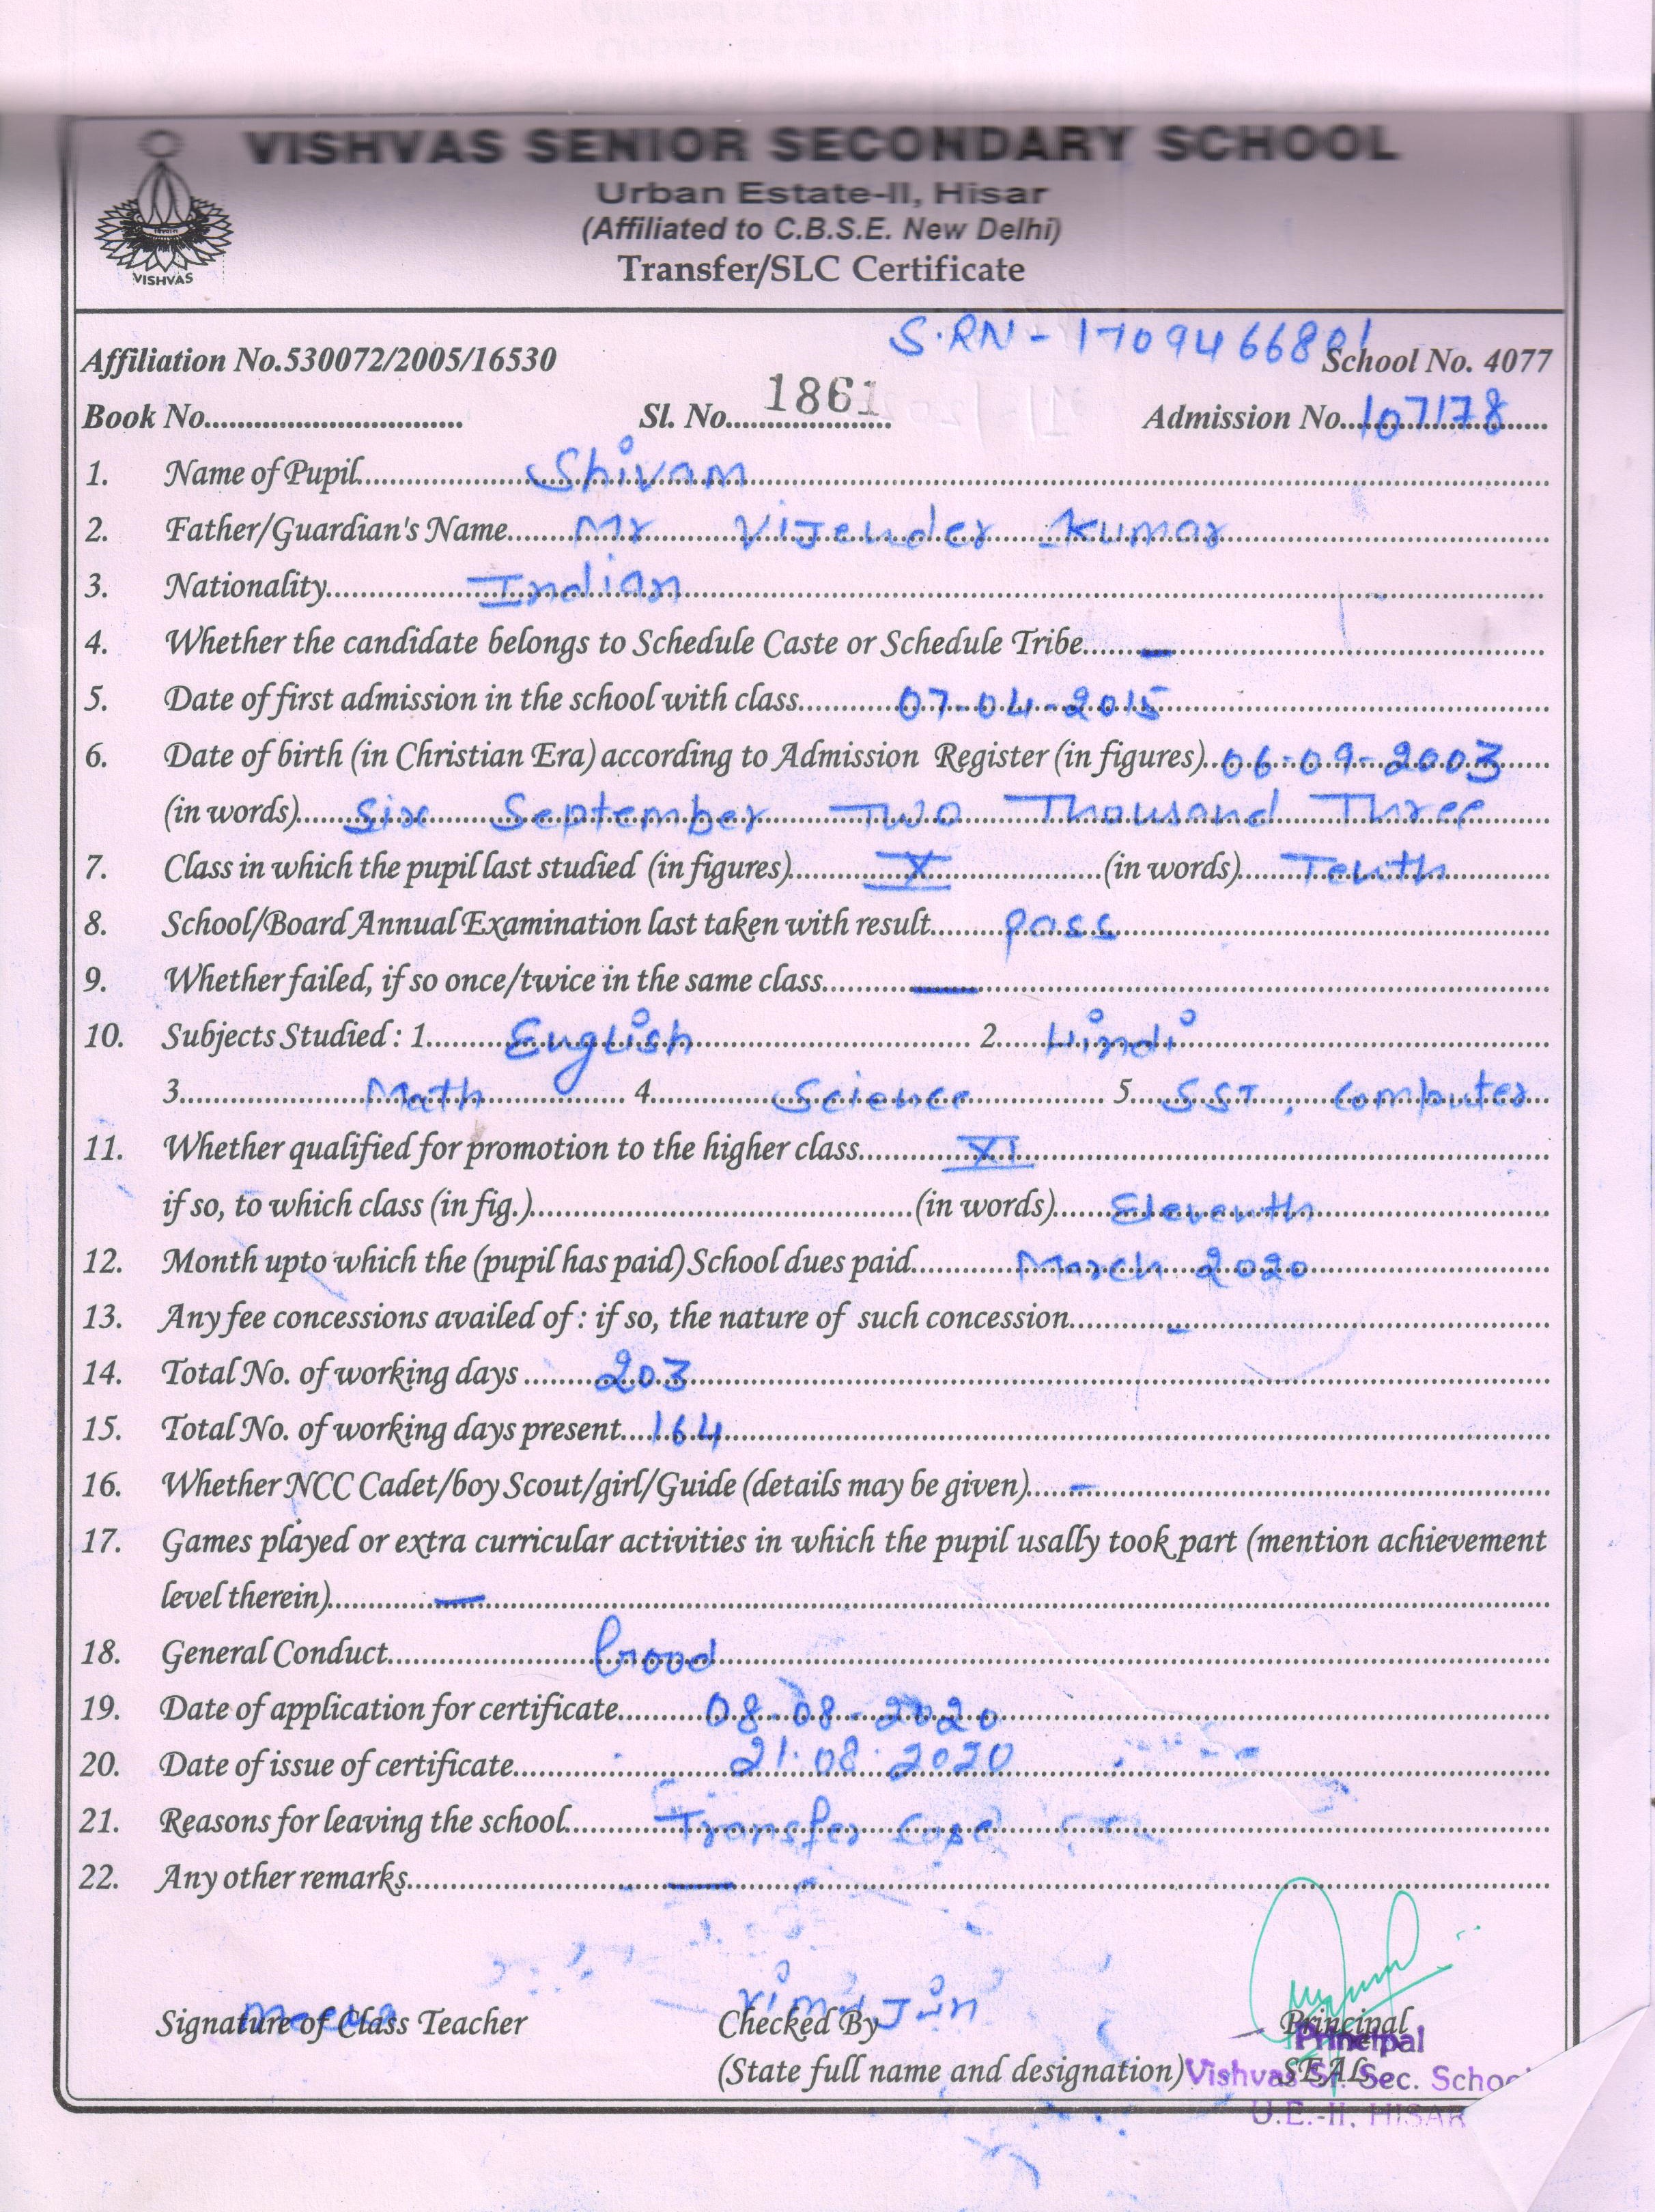 VISHVAS SENIOR SECONDARY SCHOOL
Urban Estate-II, Hisar
(Affiliated to C.B.S.E. New Delhi)
Transfer/SLC Certificate
VISHVAS
S.RN - 1709466801
Affiliation No.530072/2005/16530 School No. 4077
Book No. Sl. No. 1861 Admission No. 107178
1. Name of Pupil Shivam
2. Father/Guardian's Name Mr Vijender Kumar
3. Nationality Indian
4. Whether the candidate belongs to Schedule Caste or Schedule Tribe —
5. Date of first admission in the school with class 07-04-2015
6. Date of birth (in Christian Era) according to Admission Register (in figures) 06-09-2003
(in words) Six September Two Thousand Three
7. Class in which the pupil last studied (in figures) X (in words) Tenth
8. School/Board Annual Examination last taken with result pass
9. Whether failed, if so once/twice in the same class —
10. Subjects Studied : 1. English 2. Hindi
3. Math 4. Science 5. SST, Computer
11. Whether qualified for promotion to the higher class XI
if so, to which class (in fig.) (in words) Eleventh
12. Month upto which the (pupil has paid) School dues paid March 2020
13. Any fee concessions availed of : if so, the nature of such concession –
14. Total No. of working days 203
15. Total No. of working days present 164
16. Whether NCC Cadet/boy Scout/girl/Guide (details may be given) –
17. Games played or extra curricular activities in which the pupil usally took part (mention achievement
level therein) —
18. General Conduct Good
19. Date of application for certificate 08-08-2020
20. Date of issue of certificate 21.08.2020
21. Reasons for leaving the school Transfer Case
22. Any other remarks —
Signature of Class Teacher Checked By Principal
Principal
(State full name and designation) SEAL
Vishvas Sr. Sec. School
U.E.-II, HISAR